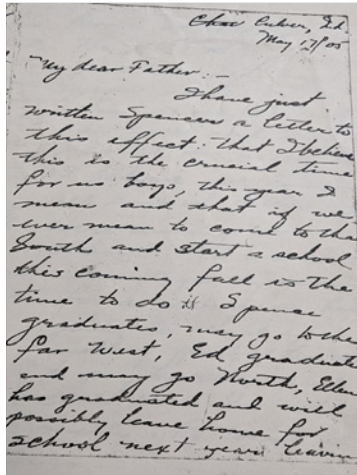 Culver, Ind.
May 17/05
"My dear Father:-
I have just
written Spencer a letter to
this effect: that I believe
this is the crucial time
for us boys, this year I
mean and that if we
ever mean to come to the
South and start a school
this coming fall is the
time to do it Spence
graduates, may go to the
far West, Ed graduate
and may go North, Ellen
has graduated and will
possibly leave home for
school next year leavin